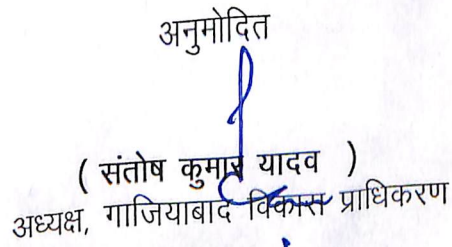 अनुमोदित
( संतोष कुमार यादव )
अध्यक्ष, गाजियाबाद विकास प्राधिकरण